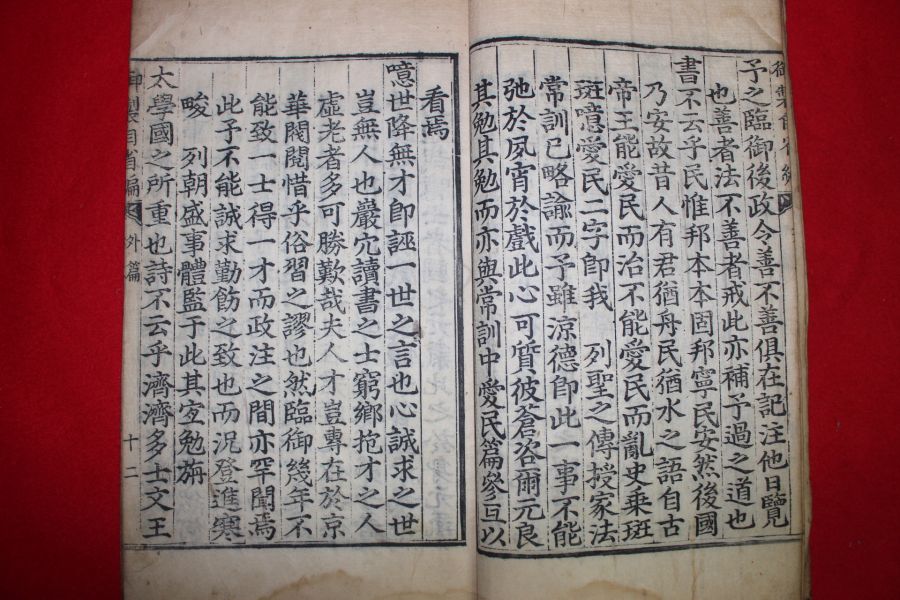 予之臨御後政令善不善俱在記注他日覽
也善者法不善者戒此亦補予過之道也
書不云乎民惟邦本本固邦寧民安然後國
乃安故昔人有君猶舟民猶水之語自古
帝王能愛民而治不能愛民而亂史乘班
班噫愛民二字卽我 列聖之傳授家法
常訓已略諭而予雖涼德卽此一事不能
弛於夙宵於戲此心可質彼蒼咨爾元良
其勉其勉而亦與常訓中愛民篇參互以
看焉
噫世降無才卽誣一世之言也心誠求之世
豈無人也巖穴讀書之士窮鄉抱才之人
虛老者多可勝歎哉夫人才豈專在於京
華閥閱惜乎俗習之謬也然臨御幾年不
能致一士得一才而政注之間亦罕聞焉
此予不能誠求勤飭之致也而況登進寒
畯 列朝盛事體監于此其宜勉旃
太學國之所重也詩不云乎濟濟多士文王
御製自省編 外篇 十二